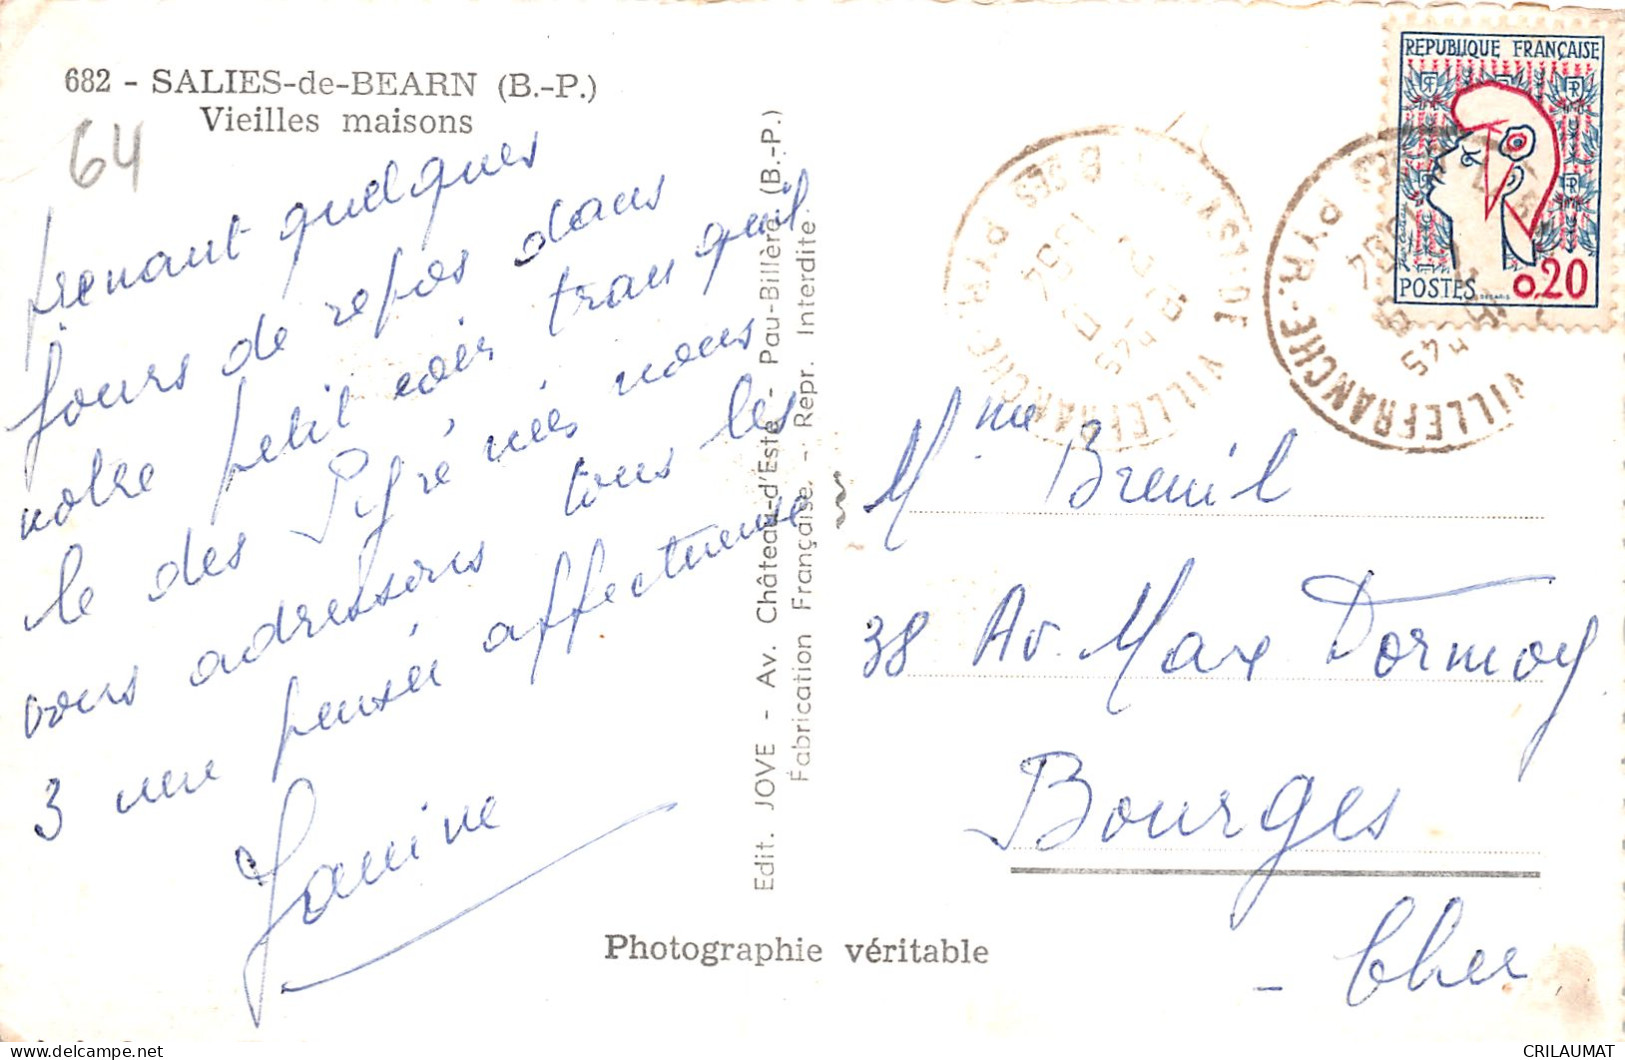 682 - SALIES-de-BEARN (B.-P.)
Vieilles maisons
64
prenant quelques
jours de repos dans
notre petit coin tranquil
le des Pyrénées nous
vous adressons tous les
3 une pensée affectueuse
Janine
Edit. JOVE - Av. Château-d'Este - Pau-Billère (B.-P.)
Fabrication Française. - Repr. Interdite.
Photographie véritable
REPUBLIQUE FRANÇAISE
POSTES 0,20
VILLEFRANCHE-
PYR.
VILLEFRANCHE-
PYR.
Mme Breuil
38 Av. Max Dormoy
Bourges
- Cher
CRILAUMAT